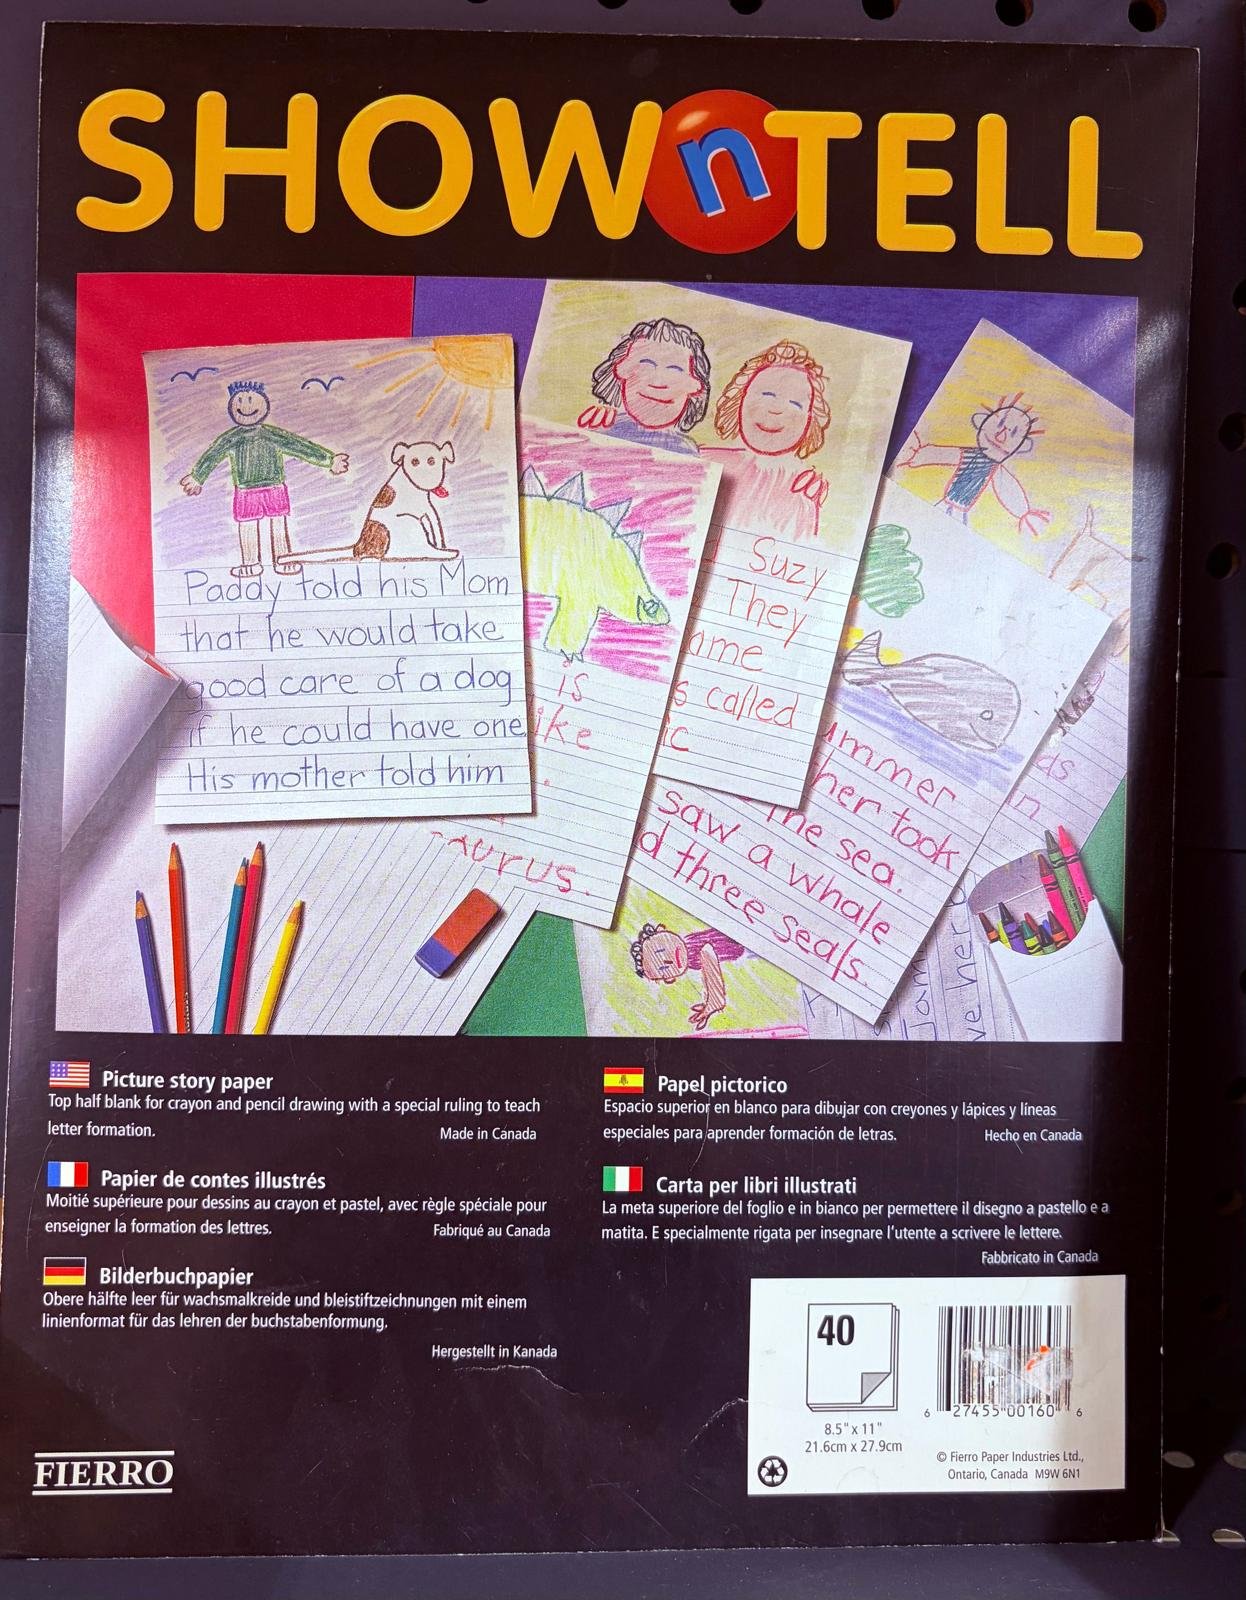 SHOW n TELL
Paddy told his Mom
that he would take
good care of a dog
if he could have one
His mother told him
is
ike
.
aurus.
Suzy
They
ame
s called
ic
ummer
her took
the sea.
saw a whale
d three seals.
ds
n
Jam
ve her
Picture story paper
Top half blank for crayon and pencil drawing with a special ruling to teach
letter formation.
Made in Canada
Papier de contes illustrés
Moitié supérieure pour dessins au crayon et pastel, avec règle spéciale pour
enseigner la formation des lettres.
Fabriqué au Canada
Bilderbuchpapier
Obere hälfte leer für wachsmalkreide und bleistiftzeichnungen mit einem
linienformat für das lehren der buchstabenformung.
Hergestellt in Kanada
Papel pictorico
Espacio superior en blanco para dibujar con creyones y lápices y líneas
especiales para aprender formación de letras.
Hecho en Canada
Carta per libri illustrati
La meta superiore del foglio e in bianco per permettere il disegno a pastello e a
matita. E specialmente rigata per insegnare l'utente a scrivere le lettere.
Fabbricato in Canada
40
8.5" x 11"
21.6cm x 27.9cm
6 27455 00160 6
© Fierro Paper Industries Ltd.,
Ontario, Canada M9W 6N1
FIERRO